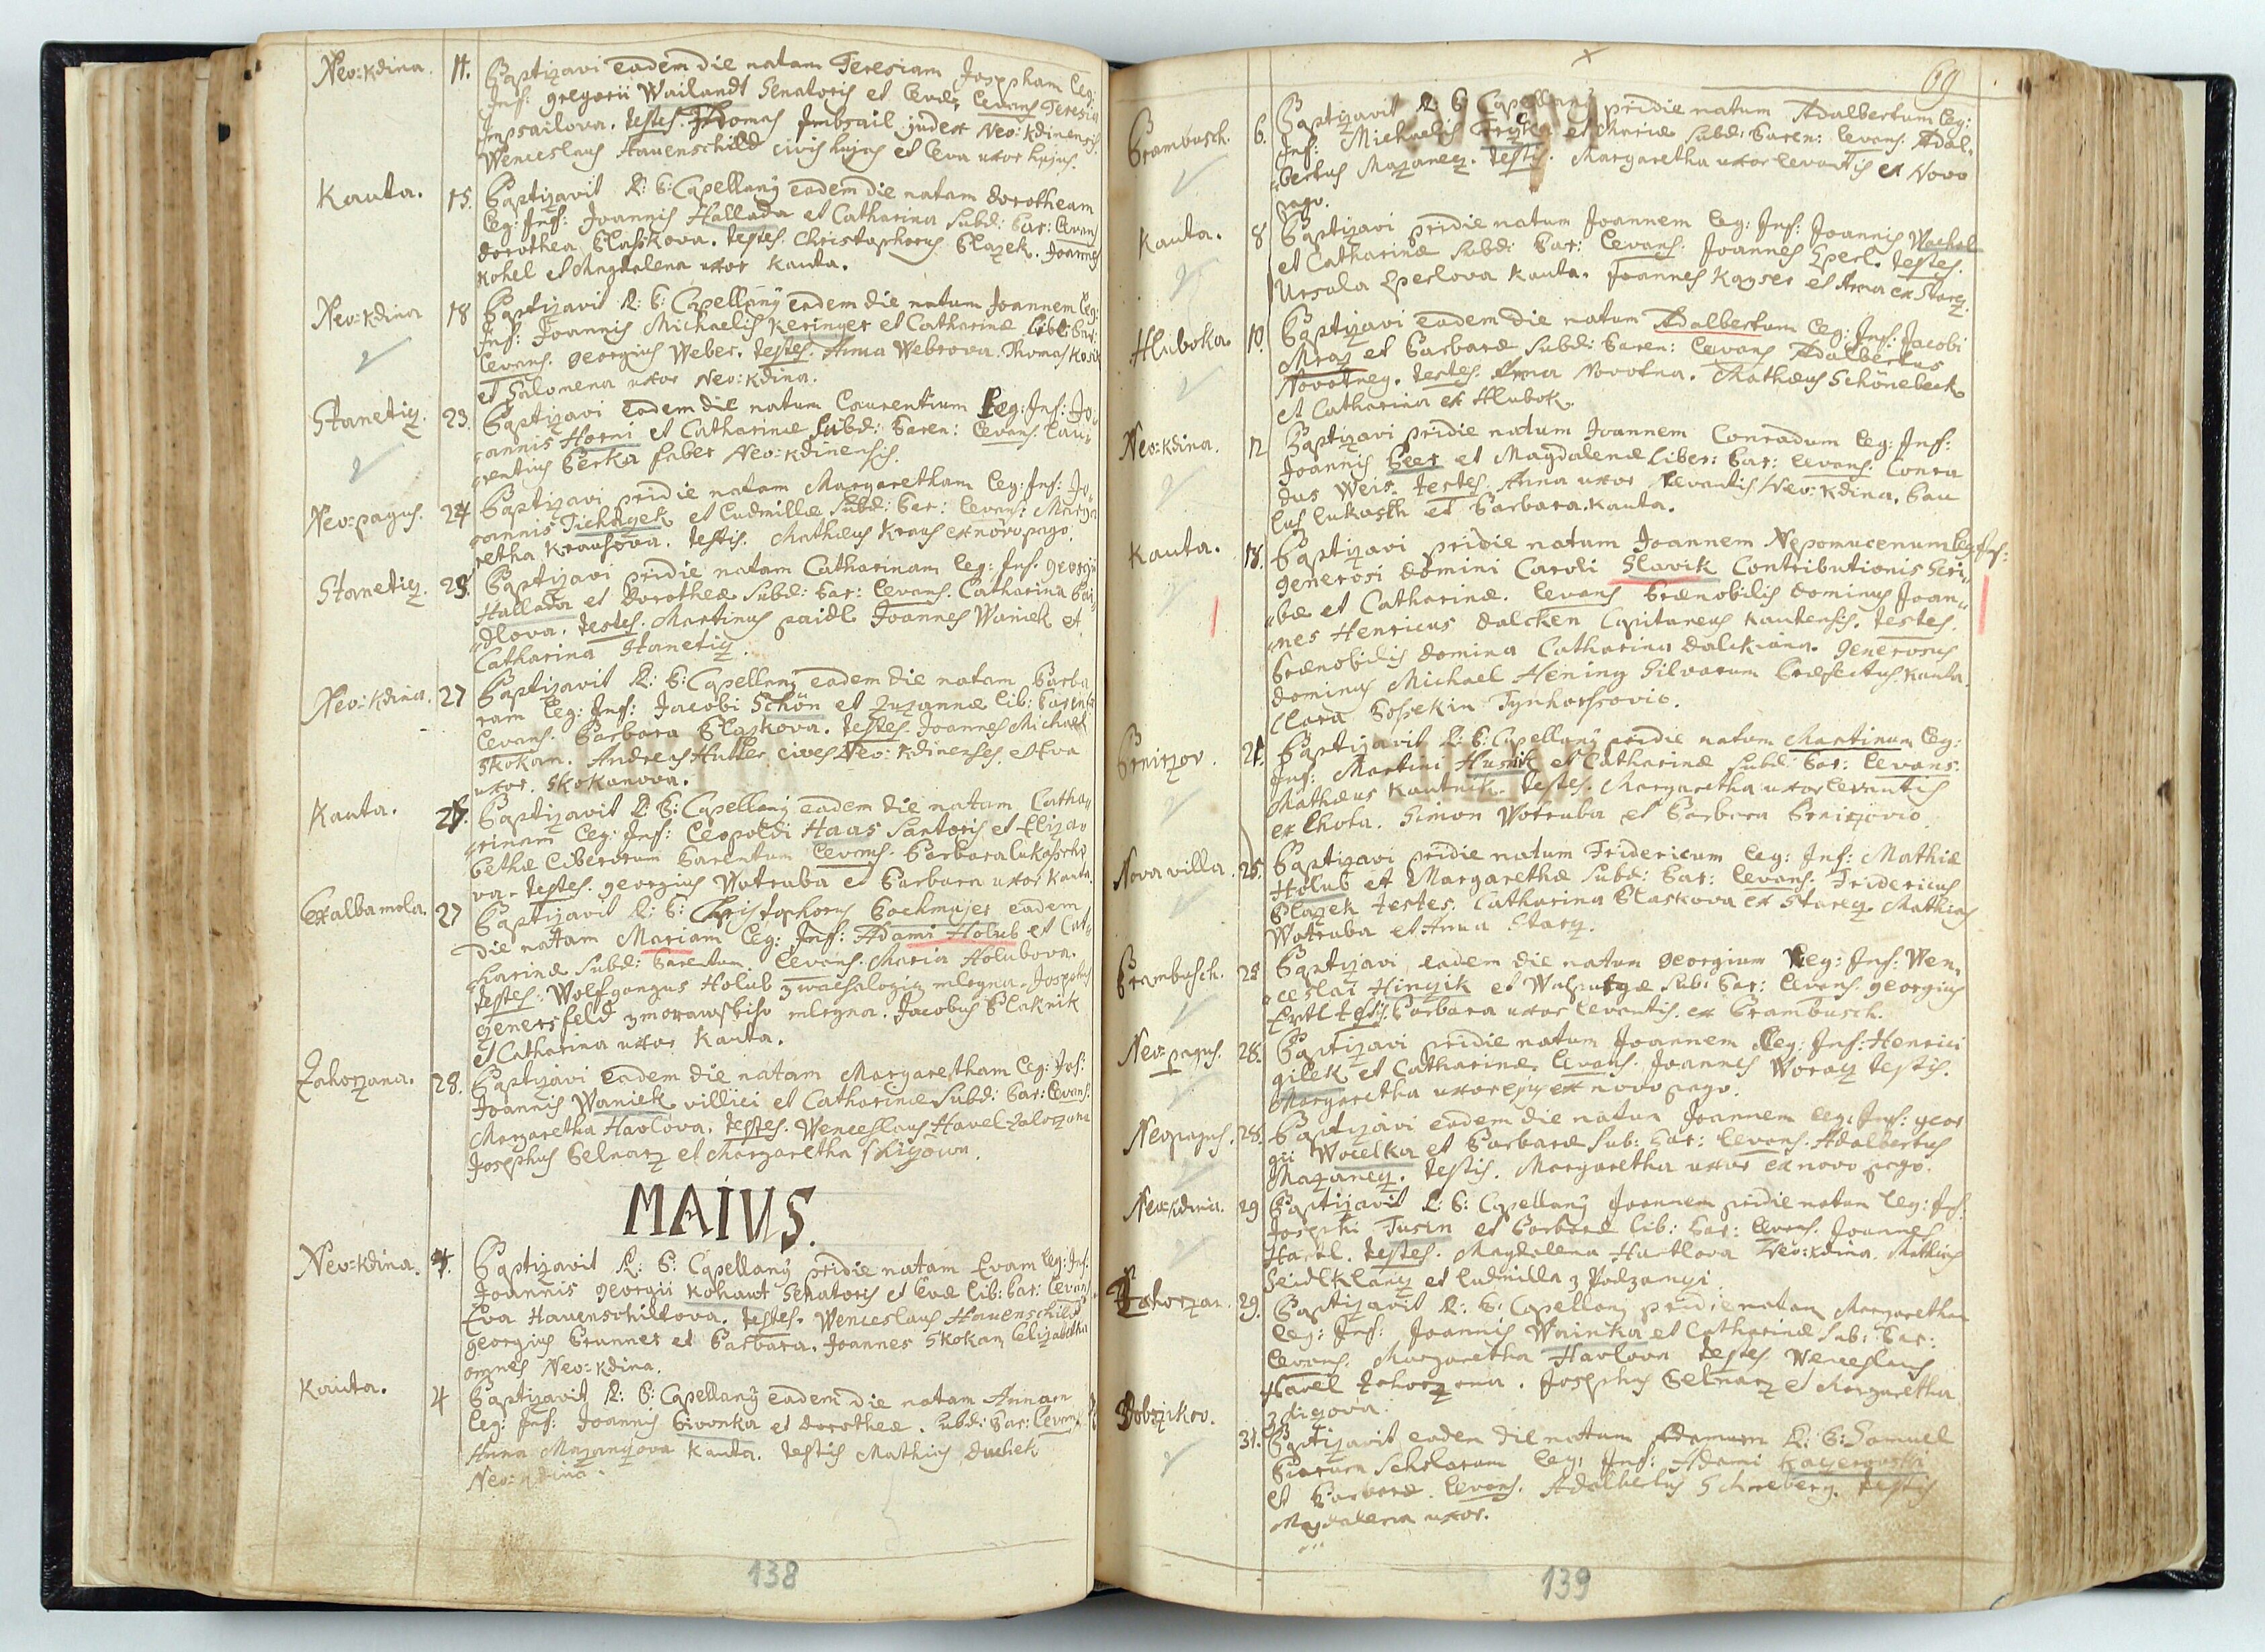 Neo:Kdina. 11. Baptizavi eadem die natam Teresiam Josepham leg:
Inf: Gregorii Wailandt Senatoris et Evae, levans Teresia
Imbsailova. testes. Thomas Imbsail judex Neo:Kdinensis.
Wenceslaus Hauenschild civis hujas et Eva uxor hujas.
Kauta. 15. Baptizavit R: P: Capellanus eadem die natam Dorotheam
leg: Inf: Joannis Hallada et Catharina Subd: Par: levans
Dorothea Blasskova. testes. Christophorus Blazek. Joannes
Kohel et Magdalena uxor Kauta.
Neo:Kdina 18 Baptizavit R: P: Capellanus eadem die natum Joannem leg:
Inf: Joannis Michaelis Keringer et Catharinae lib: Par:
levans. Georgius Weber. testes. Anna Webrova. Thomas
et Salomena uxor Neo:Kdina.
Stanetiz. 23. Baptizavi eadem die natum Laurentium Leg: Inf: Jo,,
,,annis Horni et Catharinae Subd: Paren: levans: Lau,,
,,rentius Berka faber Neo:Kdinensis.
Neo:pagus. 24 Baptizavi pridie natam Margaretham leg: Inf: Jo,,
,,annis Tichaczek et Ludmillae Subd: Par: levans: Marga
retha Krausova. testis. Mathaeus Kraus ex novo pago.
Stanetiz. 25. Baptizavi pridie natam Catharinam leg: Inf. Georgii
Hallada et Dorotheae Subd: Par: levans. Catharina Pai,,
,,dlova. testes. Martinus paidl Joannes Waniek et
Catharina Stanetiz.
Neo:Kdina. 27 Baptizavit R: P: Capellanus eadem die natam Barba
ram leg: Inf: Jacobi Schön et Zuzannae lib: Parent:
levans. Barbara Blaskova. testes. Joannes Michael
Skokan. Andreas Hutter cives Neo:Kdinenses. et Eva
uxor. Skokanova.
Kauta. 27. Baptizavit R: P: Capellanus eadem die natam Catha,,
,,rinam leg: Inf: Leopoldi Haas Sartoris et Eliza,,
bethae liberorum Parentum levans. Barbara Lukassche
va. testes. Georgius Wotruba et Barbara uxor Kauta.
Ex alba mola. 27 Baptizavit R: P: Christophorus Bachmajer eadem
Die natam Mariam leg: Inf: Adami Holub et Cat,,
,,harinae Subd: Parentum levans. Maria Holubova.
testes: Wolfgangus Holub z mlegna. Josephus
genersfeld z morawskiho mlegna. Jacobus Blaknik
et Catharina uxor Kauta.
Zahorzana. 28. Baptizavi eadem die natam Margaretham leg: Inf:
Joannis Waniek villici et Catharinae Subd: Par: levans.
Margaretha Havlova. testes. Wenceslaus Havel Zahorzana
Josephus Selnarz et Margaretha
MAIUS.
Neo:Kdina. 4. Baptizavit R: P: Capellanus pridie natam Evam leg: Inf:
Joannis Georgii Kohaut Senatoris et Evae lib: Par: levans
Eva Hauenschiltova. testes. Wenceslaus Hauenschild
Georgius Brunner et Barbara. Joannes Skokan Elizabetha
omnes Neo:Kdina.
Kauta. 4 Baptizavit R: P: Capellanus eadem die natam Annam
leg: Inf: Joannis Pivonka et Dorotheae. Subd: Par: levans
Anna Mazanczova Kauta. testis Mathias Duchek
Neo:Kdina.
138
69
Brambusch. 6. Baptizavit R: P: Capellanus pridie natum Adalbertum leg:
Inf: Michaelis et Annae Subd: Paren: levans. Adal,,
,,bertus Mazanez. testis. Margaretha uxor levantis ex Novo
pago.
Kauta. 8 Baptizavi pridie natum Joannem leg: Inf: Joannis Wachal
et Catharinae Subd: Par: levans: Joannes Eperl. testes.
Ursula Eperlova Kauta. Joannes Kayser et Anna ex Starez.
Hluboka. 10. Baptizavi eadem die natum Adalbertum leg: Inf: Jacobi
Mraz et Barbarae Subd: Paren: levans Adalbertus
Novotney. testes. Anna Novotna. Mathaeus Schönebeck
et Catharina ex Hlubok.
Neo:Kdina. 12 Baptizavi pridie natum Joannem Conradum leg: Inf:
Joannis Beer et Magdalenae liber: Par: levans. Conra
dus Weis. testes. Anna uxor levantis Neo:Kdina. Pau
lus Lukasch et Barbara. Kauta.
Kauta. 18. Baptizavi pridie natum Joannem Nepomucenum leg: Inf:
generosi Domini Caroli Slavik Contributionis Scri,,
,,bae et Catharinae. levans Praenobilis Dominus Joan,,
,,nes Henricus Dalcken Capitaneus Kautensis. testes.
Praenobilis Domina Catharina Dalckiana. Generosus
Dominus Michael Hening Silvarum Praefectus. Kauta.
Clara
21. Baptizavit R: P: Capellanus pridie natum Martinum leg:
Inf: Martini Husnik et Catharinae Subd: Par: levans.
Mathaeus Kautnik. testes. Margaretha uxor levantis
ex Lhota. Simon Wotruba et Barbara
Nova villa. 25. Baptizavi pridie natum Fridericum leg: Inf: Mathiae
Holub et Margarethae Subd: Par: levans: Fridericus
Blazek testes. Catharina Blaskova ex Starez. Mathias
Wotruba et Anna Starz.
Brambusch. 25 Baptizavi eadem die natum Georgium leg: Inf: Wen,,
,,ceslai Hinzik et Sub: Par: levans. Georgius
Ertl testis. Barbara uxor levantis. ex Brambusch.
Neo:pagus. 28. Baptizavi pridie natum Joannem leg: Inf: Henrici
gilek et Catharinae. levans. Joannes Woraz testis.
Margaretha uxor ejus ex novo pago.
Neopagus. 28. Baptizavi eadem die natum Joannem leg: Inf: Geor
gii Wocelka et Barbarae Sub: Par: levans. Adalbertus
Mazanez. testis. Margaretha uxor ex novo pago.
Neo:Kdina. 29 Baptizavit R: P: Capellanus Joannem pridie natum leg: Inf:
Josephi Tusin et Barbarae lib: Par: levans. Joannes
Hartl. testes. Magdalena Hartlova Neo:Kdina. Mathias
Seidlklanz et Ludmilla z Podzamczi.
Zahorzan. 29. Baptizavit R: P: Capellanus pridie natam Margaretham
leg: Inf: Joannis Wainka et Catharinae Sub: Par:
levans. Margaretha Havlova testes Wenceslaus
Havel Zahorzana. Josephus Selnarz et Margaretha
Dobrzikov. 31. Baptizavit eadem die natum Adamum R: P: Samuel
Piarum Scholarum leg: Inf: Adami
et Barbarae. levans. Adalbertus Schneberg. testis
Magdalena uxor.
139